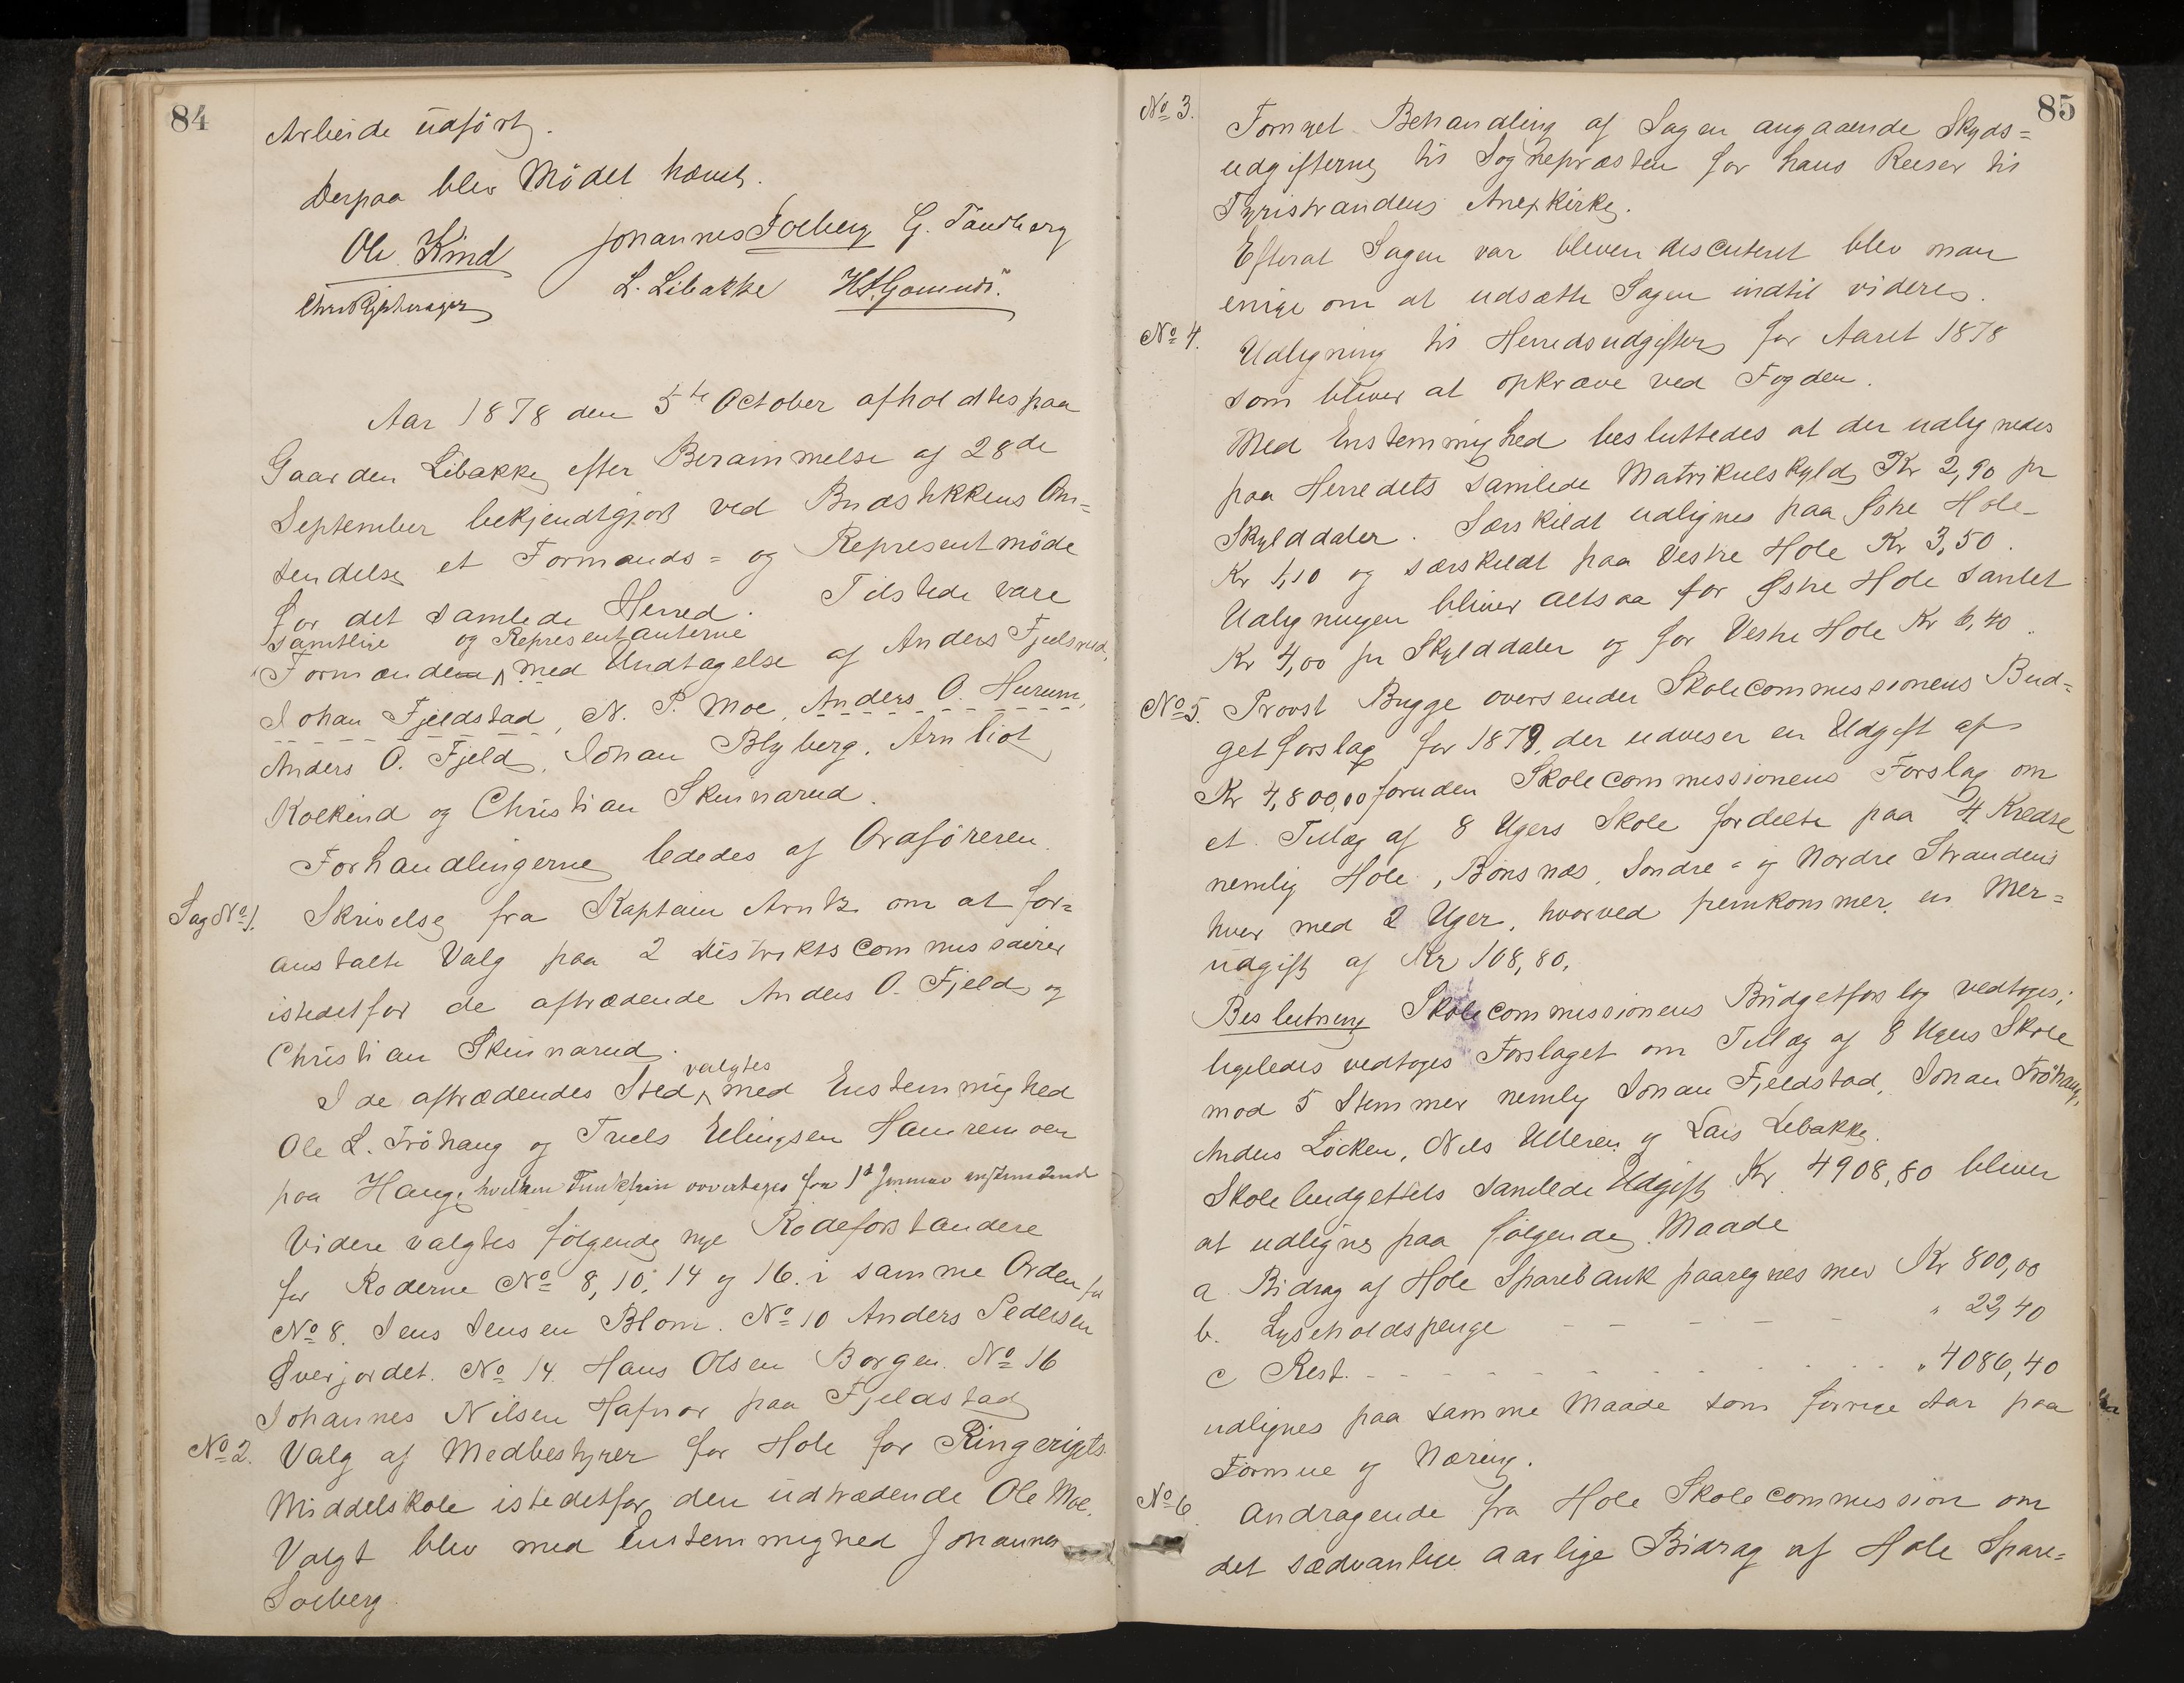 84
Arbeide udført.
Derpaa blev Mödet hævet.
Ole Kind Johannes Solberg G. Tandberg
L. Libakke
Aar 1878 den 5te October afholdtes paa
Gaarden Libakke efter Berammelse af 28de
September bekjendtgjort ved Budstikkens Om=
sendelse et Formands= og Representmöde
for det samlede Herred. Tilstede vare
samtlige og Representanterne
Formænden med Undtagelse af Anders Fjeldsrud,
Johan Fjeldstad, N. P. Moe, Anders O. Hurum,
Anders O. Fjeld, Johan Blyberg, Arnliot
Kolkind og Christian Skinnarud.
Forhandlingerne lededes af Ordföreren.
Sag No 1. Skrivelse fra Kaptain Arntz om at for=
anstalte Valg paa 2 Distriktscommissairer
istedetfor de aftrædende Anders O. Fjeld og
Christian Skinnarud.
valgtes
I de aftrædendes Sted med Enstemmighed
Ole L. Fröhaug og Truls Ellingsen Hamremoen
paa Hauge hvilken Funktion overtages fra 1st Januar
Videre valgtes fölgende nye Rodeforstandere
for Roderne No 8, 10, 14 og 16. i samme Orden for
No 8. Jens Jensen Blom. No 10 Anders Pedersen
Øverjordet. No 14. Hans Olsen Borgen. No 16
Johannes Nilsen Hafnor paa Fjeldstad
No 2. Valg af Medbestyrer for Hole for Ringerigts
Middelskole istedetfor den udtrædende Ole Moe.
Valgt blev med Enstemmighed Johannes
Solberg.
85
No 3. Fornyet Behandling af Sagen angaaende Skyds=
udgifterne til Sognepræsten for hans Reiser til
Tyristrandens Anexkirke.
Efterat Sagen var bleven discuteret blev man
enige om at udsætte Sagen indtil videre.
No 4. Udligning til Herredsudgifter for Aaret 1878
som bliver at opkræve ved Fogden.
Med Enstemmighed besluttedes at der udlignedes
paa Herredets samlede Matrikulskyld Kr 2,90 pr
Skylddaler. Særskildt udlignes paa Østre Hole
Kr 1,10 og særskildt paa Vestre Hole Kr 3,50.
Udligningen bliver altsaa for Østre Hole samlet
Kr 4,00 pr Skylddaler og for Vestre Hole Kr 6,40.
No 5. Provst Bugge oversender Skolecommissionens Bud=
getforslag for 1879, der udviser en Udgift af
Kr 4,800,00 foruden Skolecommissionens Forslag om
et Tillæg af 8 Ugers Skole fordelte paa 4 Kredse
nemlig Hole, Bönsnæs, Söndre= og Nordre Strandens
hver med 2 Uger, hvorved fremkommer en Mer=
udgift af Kr 108,80.
Beslutning Skolecommissionens Budgetforslag vedtoges;
ligeledes vedtoges Forslaget om Tillæg af 8 Ugers Skole
mod 5 Stemmer nemlig Johan Fjeldstad, Johan Fröhaug,
Anders Löcken, Nils Ulleren og Lars Libakke.
Skolebudgettets samlede Udgift Kr 4908,80 bliver
at udligne paa fölgende Maade
a Bidrag af Hole Sparebank paaregnes med Kr 800,00
b. Lysholdspenge - - - - - " 22,40
c Rest. - - - - - - - - - " 4086,40
udlignes paa samme Maade som forrige Aar paa
Formue og Næring.
No 6. Andragende fra Hole Skolecommission om
det sædvanlige aarlige Bidrag af Hole Spare=